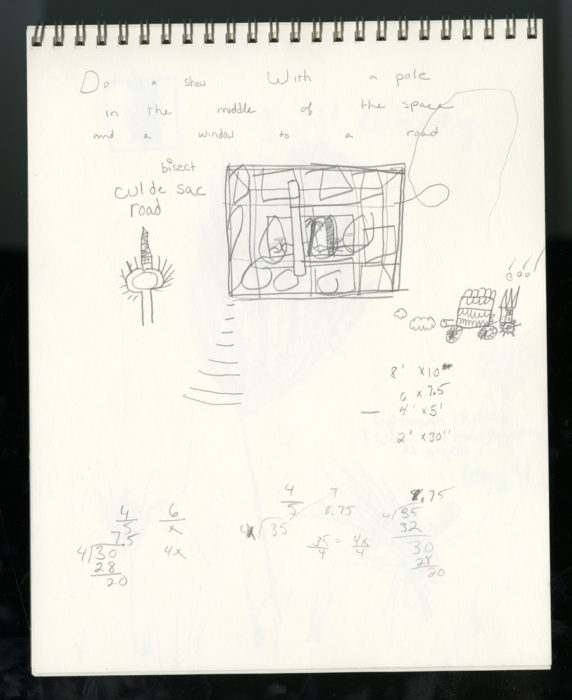 Do a show With a pole
in the middle of the space
and a window to a road
bisect
cul de sac
road
8' x10"
6 x 7.5
4' x5'
2' x30"
4
5
6
x
7.5
4x
4)30
28
20
4
5
7
8.75
)35
35 = 4x
4 4
8.75
4)35
32
30
28
20